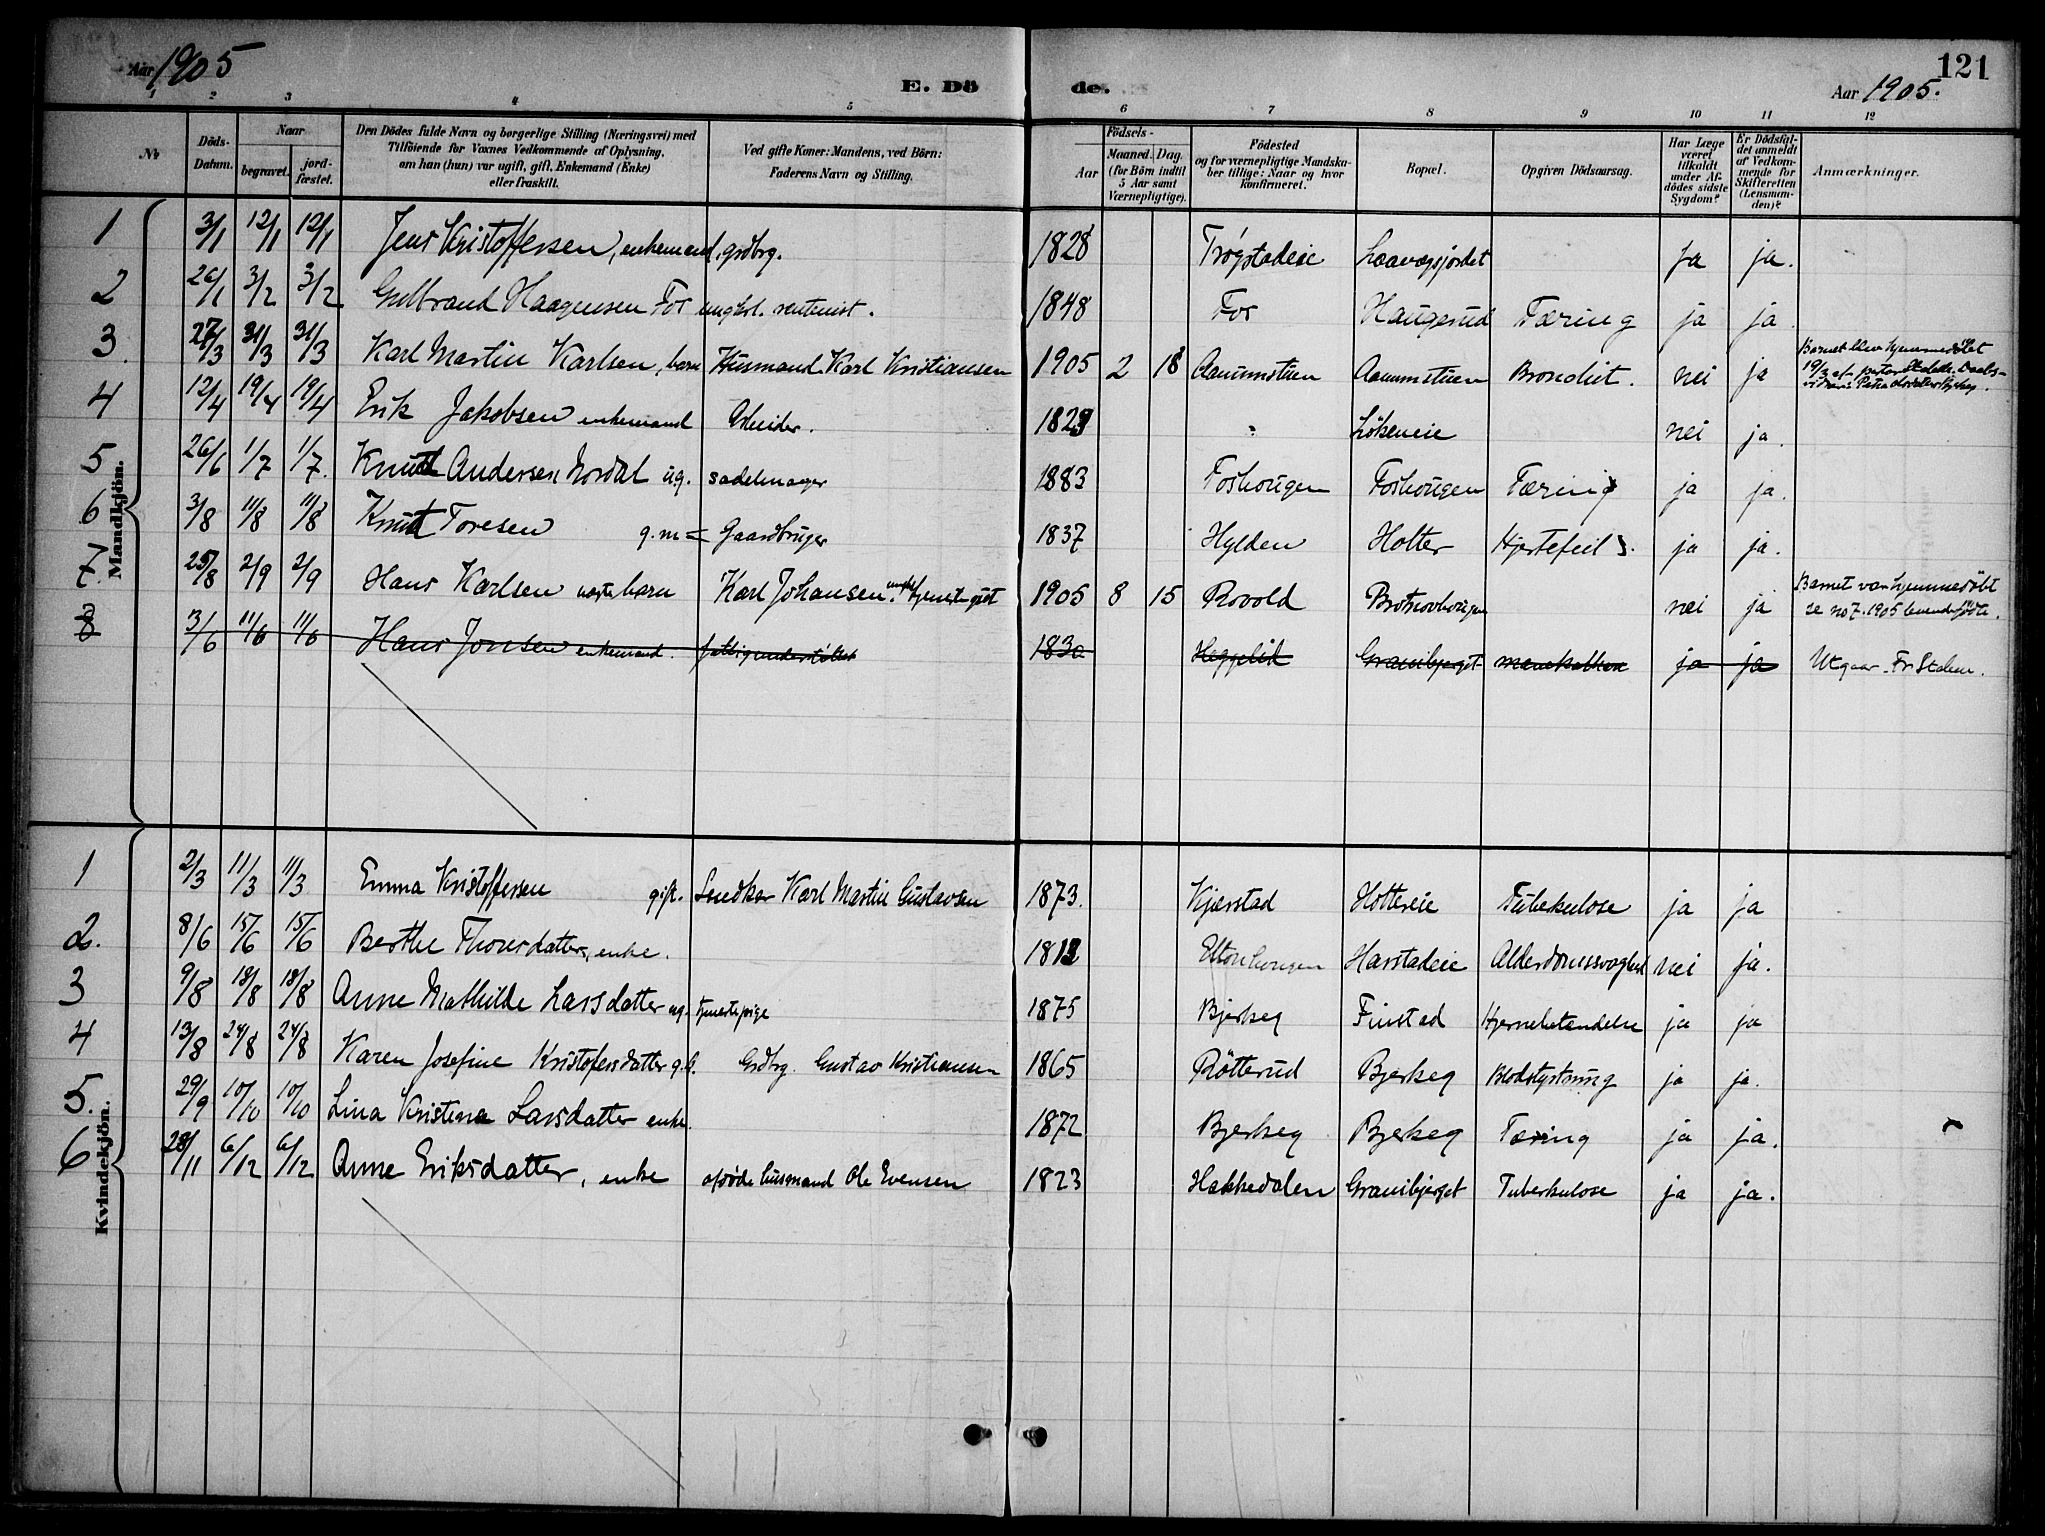 Aar 1905 E. Dö de. Aar 1905. 121
1 2 3 4 5 6 7 8 9 10 11 12
No
Döds-Datum.
Naar
begravet.
jord-fæstet.
Den Dödes fulde Navn og borgerlige Stilling (Næringsvei) med
Tilföiende for Voxnes Vedkommende af Oplysning,
om han (hun) var ugift, gift, Enkemand (Enke)
eller fraskilt.
Ved gifte Koner: Mandens, ved Börn:
Faderens Navn og Stilling.
Födsels-
Aar
Maaned. Dag.
(for Börn indtil
5 Aar samt
Værnepligtige).
Födested
og for værnepligtige Mandska-
ber tillige: Naar og hvor
konfirmeret.
Bopæl.
Opgiven Dödsaarsag.
Har Læge
været
tilkaldt
under Af-
dödes sidste
Sygdom?
Er Dödsfal-
det anmeldt
af Vedkom-
mende for
Skifteretten
(Lensman-
den)?
Anmærkninger.
Mandkjön.
1 3/1 12/1 12/1 Jens Kristoffersen, enkemand, grdbrg. 1828 Trøgstadeie Laavegsjordet ja ja.
2 26/1 3/2 3/2 Gulbrand Haagensen For ungkl. rentenist. 1848 For Haugerud Tæring ja ja.
3. 27/3 31/3 31/3 Karl Martin Karlsen, barn Husmand Karl Kristiansen 1905 2 18 Aanumstuen Aanumstuen Bronchit. nei ja Barnet blev hjemmedøbt 19/3 af
4 12/4 19/4 19/4 Erik Jakobsen enkemand Arbeider. 1829 Lökeneie nei ja.
5 26/6 1/7 1/7. Knut Andersen Nordal ug. sadelmager 1883 Foshougen Foshougen Tæring ja ja.
6 3/8 11/8 11/8 Knut Toresen g.m = Gaardbruger 1837 Hylden Holter Hjertefeil. ja ja.
7. 25/8 2/9 2/9 Hans Karlsen uægte barn Karl Johansen. ungkl. tjenestegut 1905 8 15 Rovold Brotnovhougen nei ja Barnet var hjemmedøbt se no 7. 1905 levendefødte.
8 3/6 11/6 11/6 Hans Jonsen enkemand. fattigunderstøttet 1830 Heggelid Grauibjerget ja ja Utgaar. Fr Stalen.
Kvindekjön.
1 2/3 11/3 11/3 Emma Kristoffersen gift. Snedker Karl Martin Gustavsen 1873. Kjærstad Holtereie Tuberkulose ja ja
2. 8/6 15/6 15/6 Berthe Thoresdatter, enke. 1812 Eltonhougen Harstadeie Alderdomssvaghed nei ja.
3 9/8 18/8 18/8 Anne Mathilde Larsdatter ug. tjenestepige 1875 Bjerkeg Finstad Hjernebetændelse ja ja
4 13/8 24/8 24/8 Karen Josefine Kristofersdatter g. Grdbrg. Gustav Kristiansen 1865 Rötterud Bjerkeg Blodstyrtning ja ja.
5. 29/9 10/10 10/10 Lina Kristina Larsdatter enke. 1872 Bjerkeg Bjerkeg Tæring ja ja.
6 28/11 6/12 6/12 Anne Eriksdatter, enke afdøde husmand Ole Evensen 1823 Hakkedalen Grauibjerget Tuberkulose ja ja.